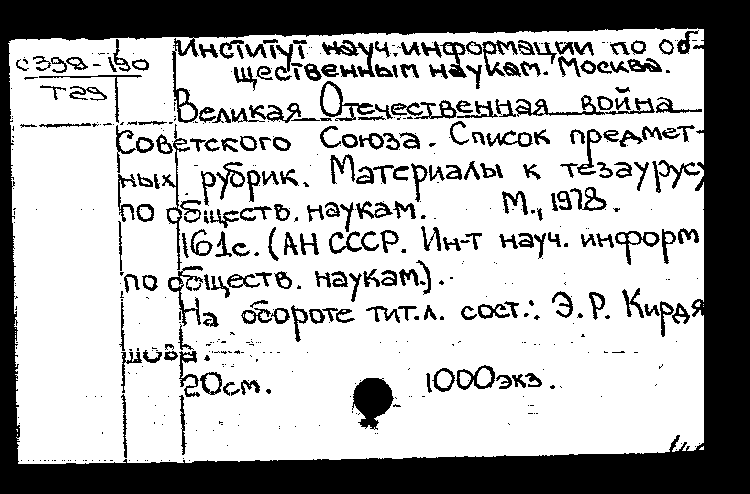 Институт науч. информации по об-
щественным наукам. Москва.
С398-190
Т29
Великая Отечественная война
Советского Союза. Список предмет-
ных рубрик. Материалы к тезаурусу
по обществ. наукам. М., 1978.
161с. (АН СССР. Ин-т науч. информ
по обществ. наукам).
На обороте тит.л. сост.: Э.Р. Кирдя
шова.
20см. 1000экз.